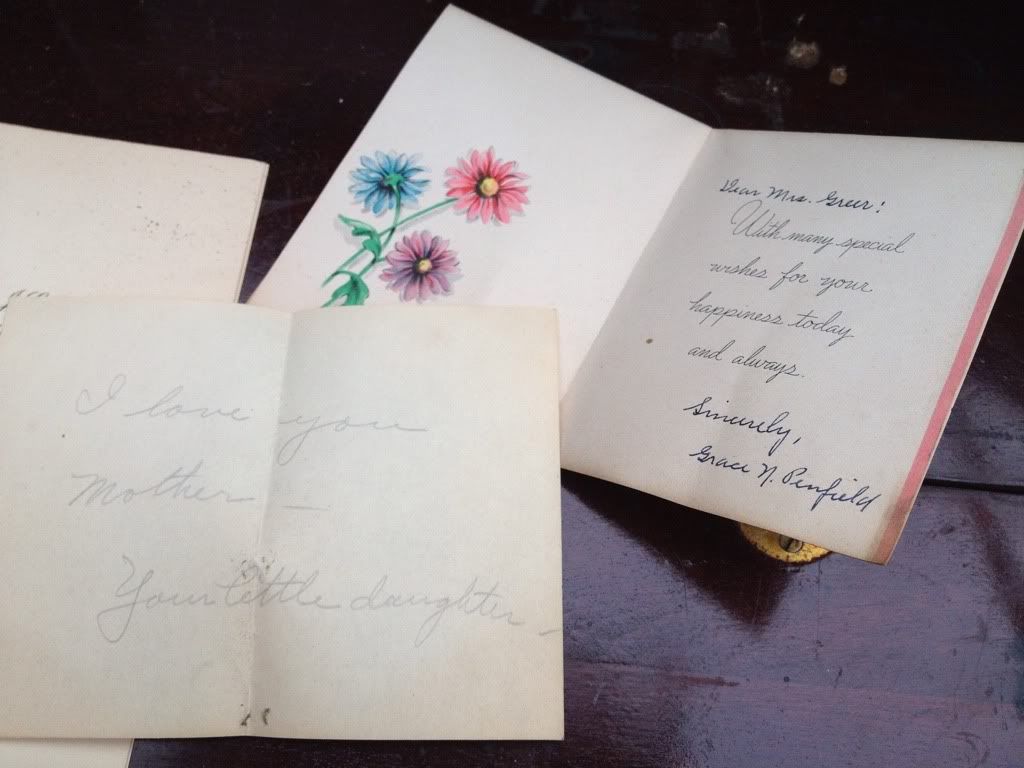 Dear Mrs. Greer:
With many special
wishes for your
happiness today
and always.
Sincerely,
Grace N. Penfield
I love you
Mother —
Your little daughter —